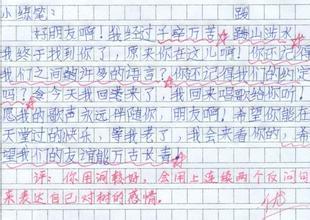 小练笔：
好朋友啊！我经过千辛万苦，跋山涉水，
我终于找到你了，原来你在这儿啊！你还记得
我们之间的许多的语言？你还记得我们的约定
吗？今天我回来了，我回来唱歌给你听！
愿我的歌声永远伴随你，朋友啊！希望你能在
天堂过的快乐，等我老了，我会来看你的，希
望我们的友谊能万古长青！
评：你用词教好，会用上连续两个反问句
来表达自己对树的感情。
优